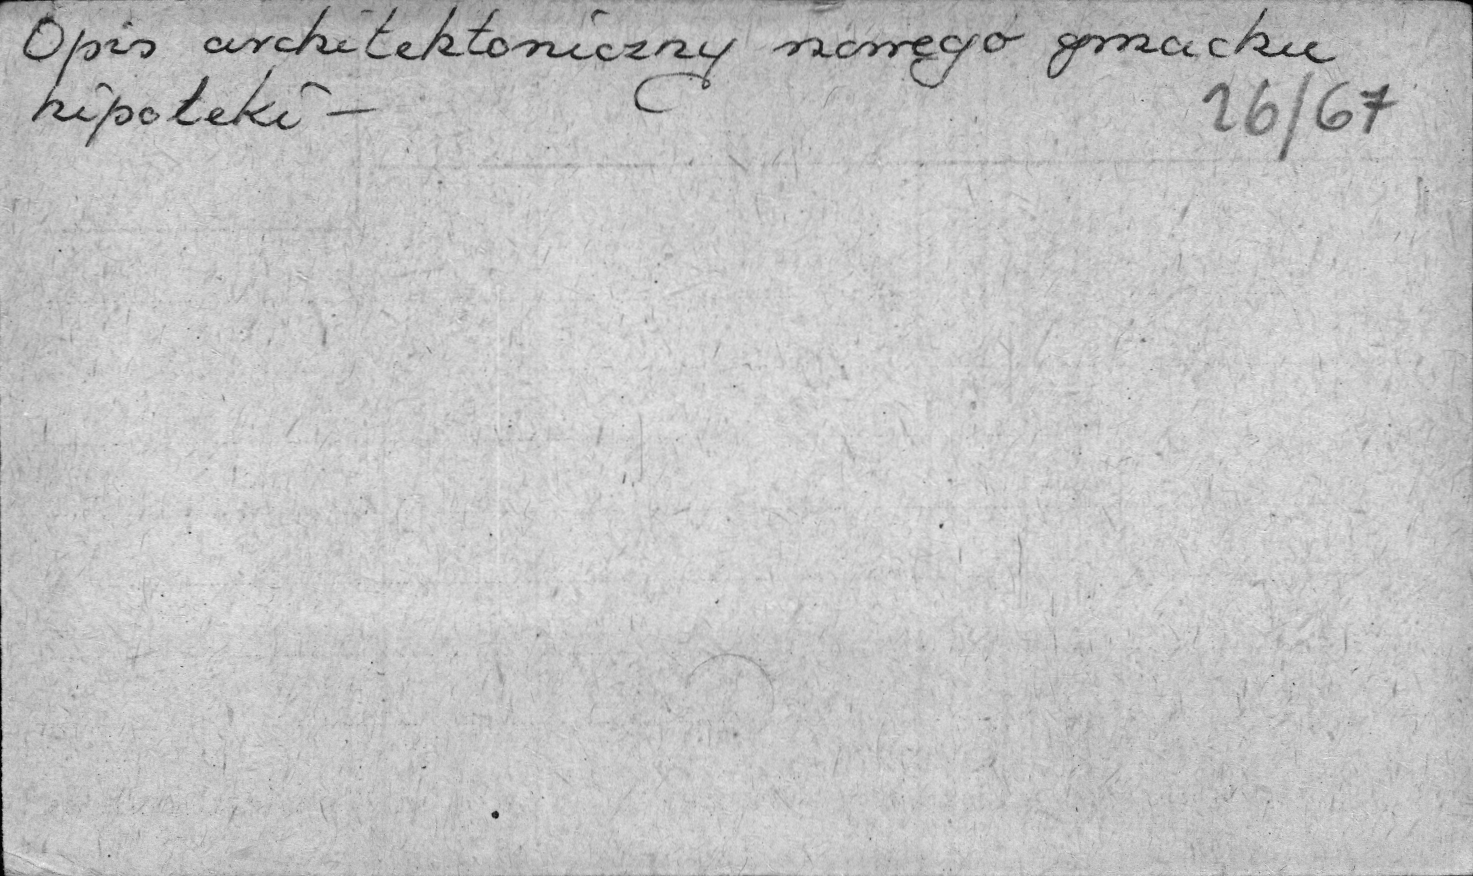 Opis architektoniczny nowego gmachu
hipoteki —
26/67